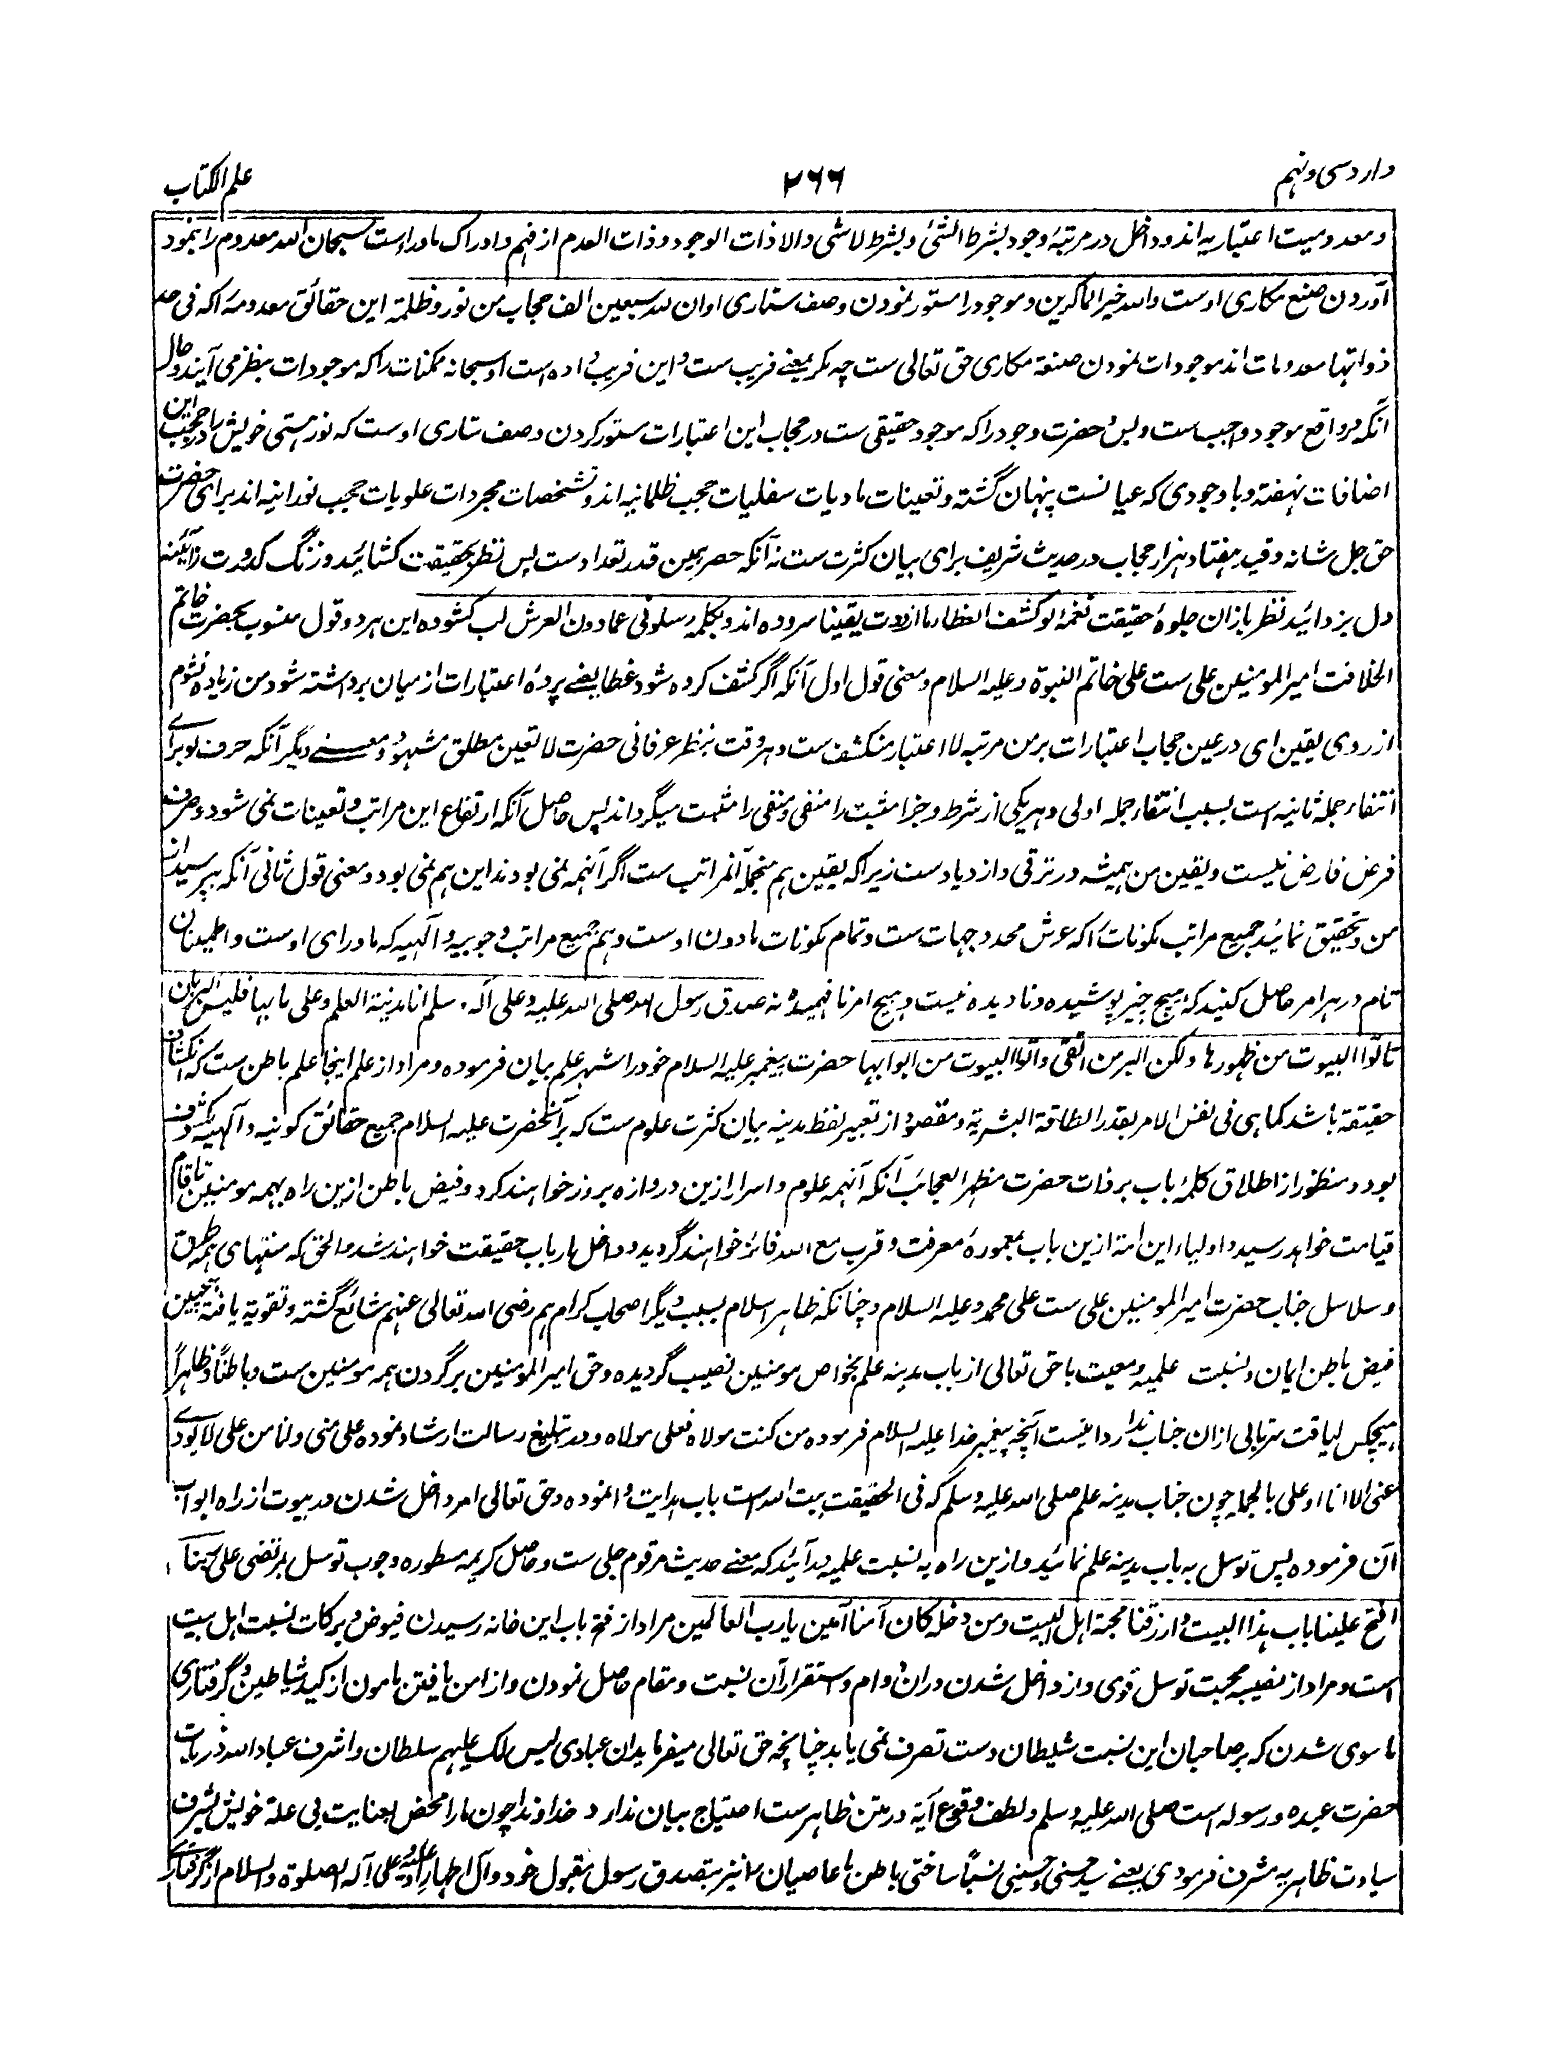 وارد سی و نهم
۲۶۶
علم الکتاب
و معدومیت اعتباریه اند و داخل در مرتبهٔ وجود بشرط الشئ و بشرط لاشی و الا ذات الوجود و ذات العدم از فهم و ادراک ماوراست سبحان الله معدوم را بنمود
آوردن صنع مکاری اوست والله خیر الماکرین و موجود را مستور نمودن وصف ستاری او ان لله سبعین الف حجاب من نور و ظلمة این حقائق معدومه را که فی حد
ذواتها معدومات اند موجودات نمودن صنعة مکاری حق تعالی ست چه مکر بمعنے فریب ست و این فریب داده است او سبحانه ممکنات را که موجودات بنظر می آیند و حال
آنکه در واقع موجود واجب ست و بس و حضرت وجود را که موجود حقیقی ست در حجاب این اعتبارات مستور کردن وصف ستاری اوست که نور هستی خویش را در حجب این
اضافات نهفته و باوجودی که عیانست پنهان گشته و تعینات مادیات سفلیات حجب ظلمانیه اند و تشخصات مجردات علویات حجب نورانیه اند برای حضرت
حق جل شانه و قید هفتاد هزار حجاب در حدیث شریف برای بیان کثرت ست نه آنکه حصر همین قدر تعداد ست پس نظر بحقیقت کشائید و زنگ کدورت از آئینه
دل بزدائید نظر بازان جلوهٔ حقیقت نغمهٔ لو کشف الغطاء ما ازددت یقینا سروده اند و بکلمهٔ سلونی عما دون العرش لب کشوده این هر دو قول منسوب بحضرت خاتم
الخلافت امیر المومنین علی ست علی خاتم النبوة و علیه السلام و معنی قول اول آنکه اگر کشف کرده شود غطا یعنے پردهٔ اعتبارات از میان برداشته شود من زیاده نشوم
از روی یقین ای در عین حجاب اعتبارات بر من مرتبه لا اعتبار منکشف ست و هر وقت بنظر عرفانی حضرت لا تعین مطلق مشهود و معنے دیگر آنکه حرف لو برائے
انتفاء جمله ثانیه است بسبب انتفاء جمله اولی و هر یکی از شرط و جزا مثبت را منفی و منفی را مثبت میگرداند پس حاصل آنکه ارتفاع این مراتب و تعینات نمی شود و صرف
فرض فارض نیست و یقین من همیشه در ترقی و ازدیاد ست زیرا که یقین هم منجمله آنمراتب ست اگر آنهمه نمی بودند این هم نمی بود و معنی قول ثانی آنکه بپرسید از
من و تحقیق نمائید جمیع مراتب مکونات را که عرش محدد جهات ست و تمام مکونات مادون اوست و هم جمیع مراتب وجوبیه و الهیه که ماورای اوست و اطمینان
تام در هر امر حاصل کنید که هیچ چیز پوشیده و نادیده نیست و هیچ امر نا فهمیده نه صدق رسول الله صلی الله علیه و علی آله و سلم انا مدینة العلم و علی بابها فلیس البر بان
تاتوا البیوت من ظهورها ولکن البر من اتقی واتوا البیوت من ابوابها حضرت پیغمبر علیه السلام خود را شهر علم بیان فرموده و مراد از علم اینجا علم باطن ست که انکشاف
حقیقة باشد کما هی فی نفس الامر بقدر الطاقة البشریة و مقصود از تعبیر بلفظ مدینه بیان کثرت علوم ست که بر آنحضرت علیه السلام جمیع حقائق کونیه و الهیه مکشوف
بود و منظور از اطلاق کلمهٔ باب بر ذات حضرت مظهر العجائب آنکه آنهمه علوم و اسرار ازین دروازه بروز خواهند کرد و فیض باطن ازین راه بهمه مومنین تا قیام
قیامت خواهد رسید و اولیاء این امة ازین باب بمعمورهٔ معرفت و قرب مع الله فائز خواهند گردید و داخل ارباب حقیقت خواهند شد و الحق که منتهای همه طرق
و سلاسل جناب حضرت امیر المومنین علی ست علی محمد و علیه السلام و چنانکه ظاهر اسلام بسبب دیگر اصحاب کرام هم رضی الله تعالی عنهم شائع گشته و تقویة یافته همچنین
فیض باطن ایمان و نسبت علمیه و معیت با حق تعالی از باب مدینه علم بخواص مومنین نصیب گردیده و حق امیر المومنین بر گردن همه مومنین ست و باطنًا و ظاهرًا
هیچکس لیاقت سرتابی ازان جناب ندارد اینست آنچه پیغمبر خدا علیه السلام فرموده من کنت مولاه فعلی مولاه و در تبلیغ رسالت ارشاد نموده علی منی و انا من علی لا یودے
عنی الا انا او علی بالجمله چون جناب مدینه علم صلی الله علیه وسلم که فی الحقیقت بیت الله است باب هدایت وا نموده و حق تعالی امر داخل شدن در بیوت از راه ابواب
آن فرموده پس توسل به باب مدینه علم نمائید و ازین راه به نسبت علمیه درآئید که معنے حدیث مرقوم جلی ست و حاصل کریمه مسطوره وجوب توسل بمرتضی علی ربنا
افتح علینا باب هذا البیت وارزقنا محبة اهل البیت ومن دخله کان آمنا آمین یا رب العالمین مراد از فتح باب این خانه رسیدن فیوض و برکات نسبت اهل بیت
است و مراد از نصیبهٔ محبت توسل قوی و از داخل شدن دران دوام و استقرار آن نسبت و مقام حاصل نمودن و از امن یافتن مامون از کید شیاطین و گرفتاری
ماسوی شدن که بر صاحبان این نسبت شیطان دست تصرف نمی یابد چنانچه حق تعالی میفرماید ان عبادی لیس لک علیهم سلطان و اشرف عباد الله ذریات
حضرت عبده و رسوله است صلی الله علیه وسلم و لطف وقوع آیة در متن ظاهر ست احتیاج بیان ندارد خداوندا چون ما را محض بعنایت بی علة خویش بشرف
سیادت ظاهریه مشرف فرمودی یعنے سید حسنی و حسینی نسبًا ساختی باطن ما عاصیان را نیز بتصدق رسول مقبول خود و آل اطهار او علیه و علی آله الصلوة والسلام از گرفتارے